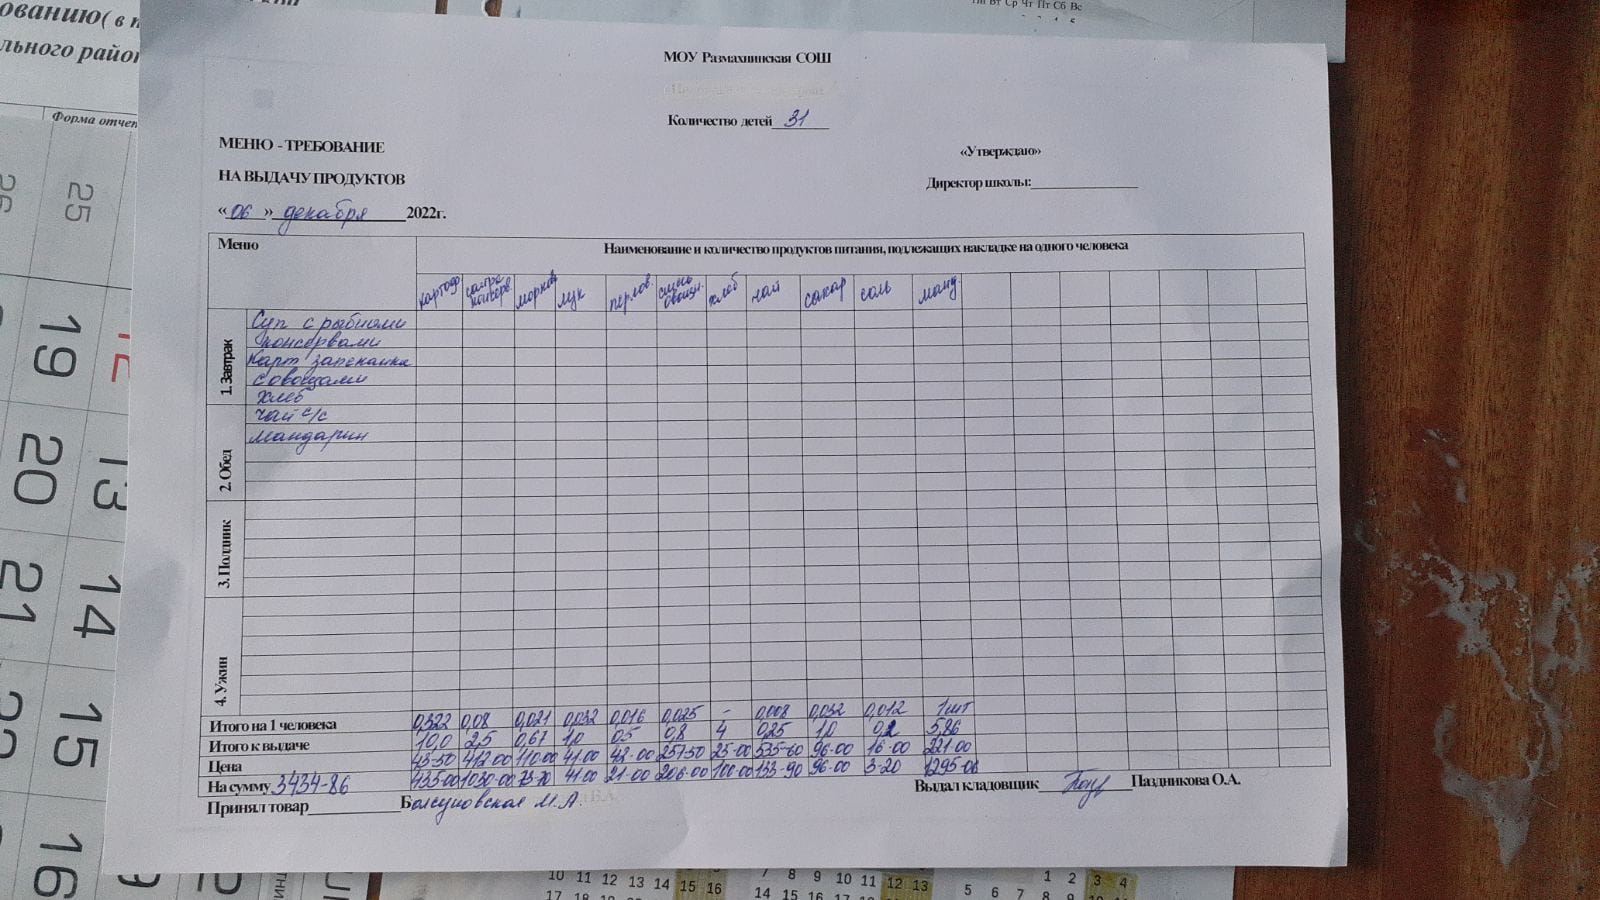 ованию( в п
льного район
Форма отчет
Пн Вт Ср Чт Пт Сб Вс
МОУ Размахнинская СОШ
Количество детей 31
МЕНЮ - ТРЕБОВАНИЕ
«Утверждаю»
НА ВЫДАЧУ ПРОДУКТОВ
Директор школы:
«06» декабря 2022г.
Меню
Наименование и количество продуктов питания, подлежащих накладке на одного человека
картоф консерв морков лук перлов. смесь овощн. хлеб чай сахар соль манд
1. Завтрак
Суп с рыбными
консервами
Карт запеканка
с овощами
хлеб
2. Обед
чай с/с
мандарин
3. Полдник
4. Ужин
Итого на 1 человека 0,322 0,08 0,021 0,032 0,016 0,025 - 0,008 0,032 0,012 1шт
Итого к выдаче 10,0 2,5 0,67 1,0 0,5 0,8 4 0,25 1,0 0,2 5,86
Цена 43-50 412-00 110-00 41-00 42-00 257-50 25-00 535-60 96-00 16-00 221-00
На сумму 3434-86 435-00 1030-00 73-70 41-00 21-00 206-00 100-00 133-90 96-00 3-20 1295-06
Выдал кладовщик Паздникова О.А.
Принял товар Болсуновская М.А.
25 26
19
20 13
21 14
15
16
10 11 12 13 14 15 16
7 8 9 10 11 12 13
1 2 3 4
14 15 16 17 18 19 20
5 6 7 8 9 10 11